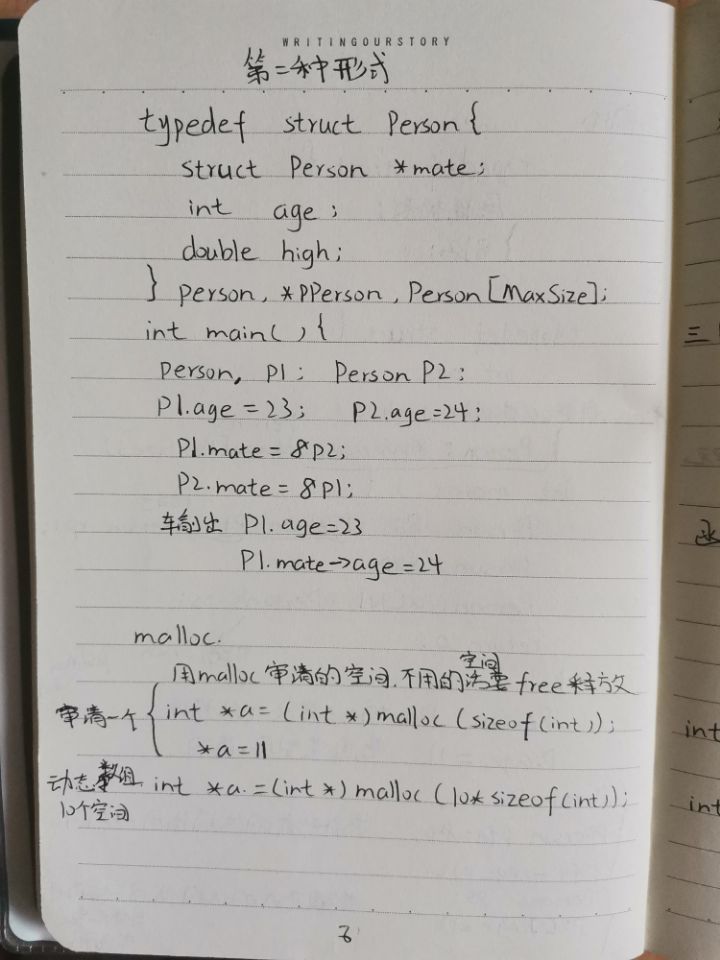 WRITINGOURSTORY
第二种形式
typedef struct Person {
struct Person *mate;
int age;
double high;
} person, *PPerson, Person [MaxSize];
int main() {
person, p1; Person P2;
P1.age = 23; P2.age=24;
P1.mate = &P2;
P2.mate = &P1;
输出 P1.age=23
P1.mate->age=24
malloc.
空间
用malloc 申请的空间.不用的话要 free 释放
申请一个 { int *a = (int *) malloc (sizeof(int));
*a = 11
动态数组 int *a. = (int *) malloc (10* sizeof(int));
10个空间
6
三
函
int
int